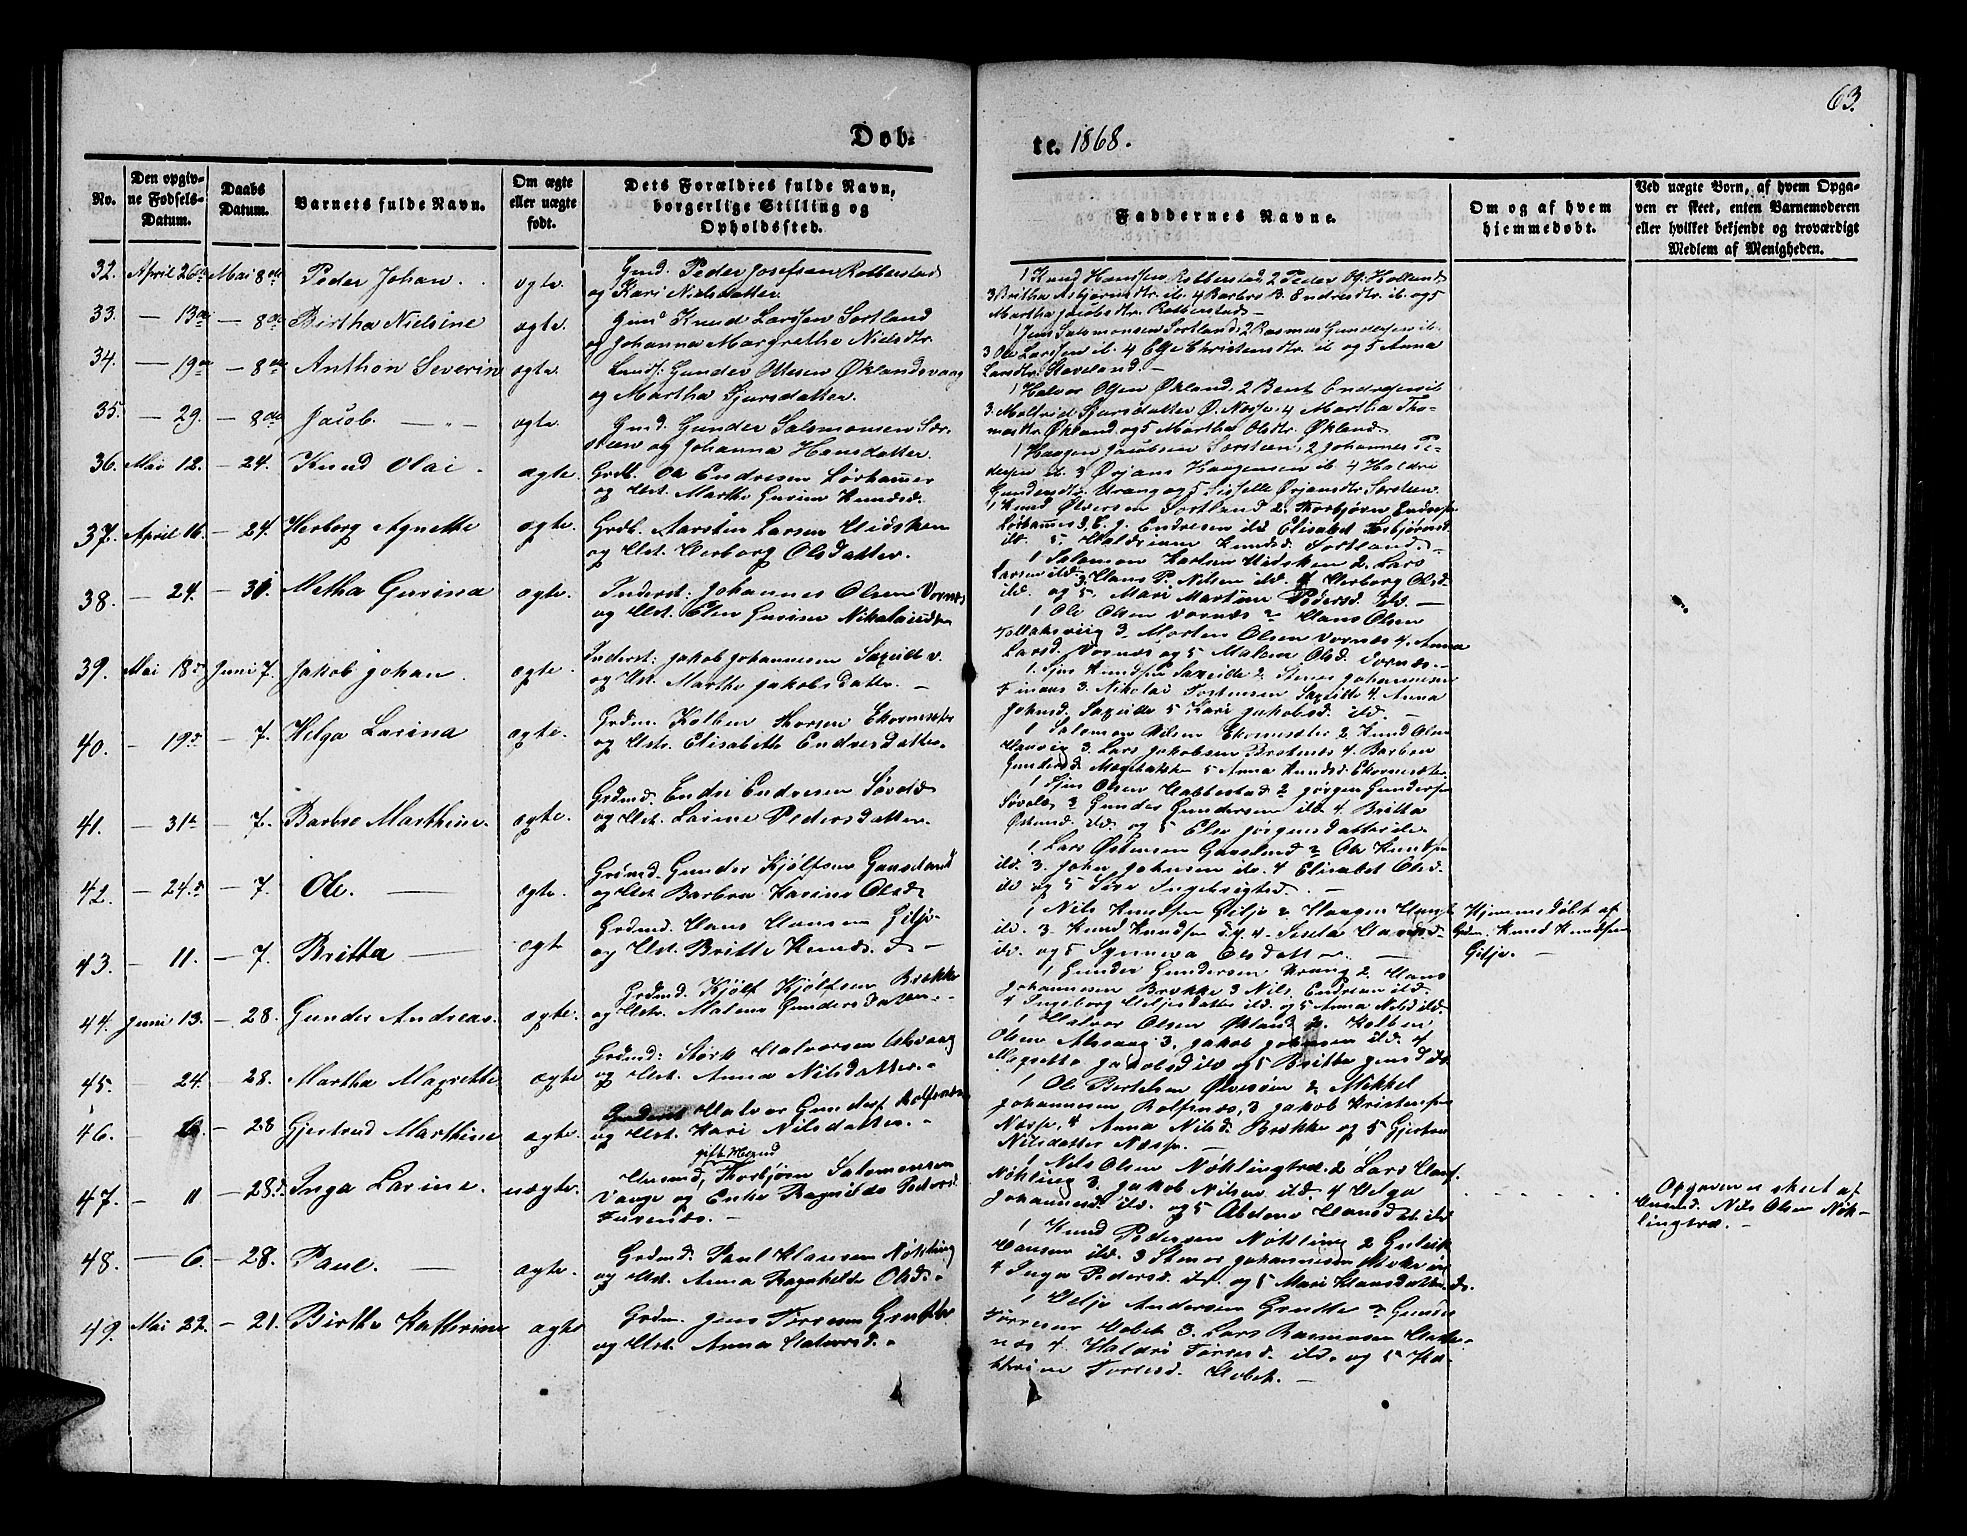 63.
Døb-
te. 1868.
No.
Den opgiv-
ne Fødsels-
Datum.
Daabs
Datum.
Barnets fulde Navn.
Om ægte
eller uægte
født.
Dets Forældres fulde Navn,
borgerlige Stilling og
Opholdssted.
Faddernes Navne.
Om og af hvem
hjemmedøbt.
Ved uægte Børn, af hvem Opga-
ven er skeet, enten Barnemoderen
eller hvilket bekjendt og troværdigt
Medlem af Menigheden.
32. April 26de Mai 8de Peder Johan. ogte.
Gmd. Peder Josefsen Robberstad
og Kari Nielsdatter.
1 Knud Hansen Robberstad 2 Peder
3 Britha Asbjørnsdtr. ib. 4 Barbro B. Endresdtr. ib og 5
Martha Jacobsdtr. Robberstad
33. — 13de — 8de Birtha Nielsine ogte.
Gmd Knud Larssen Sortland
og Johanna Margrethe Nielsdtr.
1 Jens Salomonsen Sortland, 2 Rasmus Gundersen ib.
3 Ole Larssen ib. 4 Elje Christensdtr. ib og 5 Anna
Larsdtr. Staveland —
34. — 19de — 8de Anthon Severin ogte.
Gunder Olsen Øklandsvaag
og Martha Sjursdatter.
1 Halvor Olsen Økland, 2 Bent Endresen ib
3. Malfrid Sjursdatter Ø. Næsse. 4 Martha Tho-
masdtr. Økland og 5 Martha Olsdtr. Økland
35. — 29. — 8de Jacob. — " — ogte.
Gmd. Gunder Salomonsen Sør-
steen og Johanna Hansdatter.
1 Haagen Jacobsen Sørsteen, 2 Johannes Pe-
dersen ib. 3 Ørjans Haagensen ib 4 Haldri
Gundersdtr. Vrang og 5 Sisselle Ørjansdtr Sørsteen.
36. Mai 12. — 24. Knud Olai. ogte.
Grdb. Ole Endresen Lørhammer
og Hst. Marthe Gurine Knudsd.
1 Knud Østensen Sortland 2. Thorbjørn Endresen
Lørhammer 3. E. J. Endresen ibd Elisabet Asbjørnsd.
ib. 5 Knudsd. Sortland. —
37. April 16. — 24. Herborg Agnethe ogte.
Grdb. Karsten Larsen Hidsken
og Hst. Herborg Olsdatter.
1 Salomon Karlsen Hidsken 2. Lars
Larsen ibd. 3. Hans P. Nilsen ibd. 4 Herborg Olsd.
ibd. og 5, Mari Martine Pedersd. ibd. —
38. — 24. — 31. Metha Gurina ogte.
Inderst: Johannes Olsen Vornes
og Hst. Elen Gurine Nikolaisd.
1 Ole Olsen Vornæs 2 Hans Olsen
3. Morten Olsen Vornæs 4. Anna
Larsd. Vornæs og 5 Malena Olsd. Vornæs. —
39. Mai 18de Juni 7. Jakob Johan. ogte.
Inderst: Jakob Johannesen
og Hst. Marthe Jakobsdatter. —
1. Sjur Knudsen 2. Stener Johannesen
Finaas 3. Nikolai Torstensen 4. Anna
Johnsd. 5 Kari Jakobsd. ibd. —
40. — 19de — 7. Helga Larina ogte.
Grdm. Kolben Thorsen Ekornesæter
og Hst. Elisabeth Endresdatter.
1 Salomon Nilsen Ekornesæter 2. Knud Olsen
3. Lars Jakobsen 4. Barbro
Gundersd. 5 Anna Knudsd. Ekornesæter.
41. — 31te — 7. Barbro Marthine. ogte.
Grdmd. Endre Endresen Søvold
og Hst. Larine Pedersdatter.
1 Sjur Olsen Habbestad 2 Jørgen Gundersen
Søvold 3 Gunder Gundersen ibd. 4. Britta
ibd. og 5 Else Jørgensdatter ibd.
42. — 24de — 7. Ole. — ogte.
Grdmd. Gunder Kjølfsen Gaasland
og Hst. Barbra Karine Olsd.
1. Lars Østensen Gaasland 2 Ole Knudsen
ibd. 3. John Johnsen ib. 4 Elisabet Olsd.
ibd og 5 Siri Ingebrigtsd. —
43. — 11. — 7. Britta — ogte
Grdmd. Hans Hansen Gilje
og Hst. Britte Knudsd. —
1 Nils Knudsen Gilje 2 Haagen
ibd. 3. Knud Knudsen 4. Sisela Hansd.
ibd. og 5 Synneva Olsdatter. —
Hjemmedøbt af
Grdm. Knud Knudsen
Gilje. —
44. Juni 13. — 28. Gunder Andreas. ogte.
Grdmd. Kjølf Kjølfsen Brekke
og Hst. Malene Gundersdatter.
1 Gunder Gundersen Vrang 2 Hans
Johannesen Brekke 3 Nils Endresen ibd.
4 Ingeborg Heljesdatter ibd. og 5 Anna Nilsd ibd.
45. — 24. — 28. Martha Magrethe ogte
Grdmd: Størk Halvorsen Alsvaag
og Hst. Anna Nilsdatter.
1 Halvor Olsen Økland 2. Kolben
Olsen Alsvaag 3. Jakob Johnsen ibd. 4
Magretta Jakobsd ibd og 5 Britta Jensd ibd.
46. — — 28 Gjertrud Marthine ogte.
Halvor Gunders. Rolfsnæs
og Hst. Kari Nilsdatter.
1 Ole Bertelsen Øvrevøen 2 Mikkel
Johannesen Rolfsnæs, 3 Jakob Kristensen
Næsse, 4 Anna Nilsd. Brekke og 5 Gjertru
Nilsdatter Næsse.
47. — 11 — 28de Inga Larine. uægte.
gift Mand
Thorbjørn Salomonsen
Vange og Enke Ragnilde Pedersd.
Furenæs. —
1 Nils Olsen Nøklingtræ 2 Lars
Nøkling 3. Jakob Nilsen ibd. 4 Helga
Johannesd. ibd. og 5 Hansd. ibd.
Opgaven er skeet af
Nils Olsen Nøk-
lingtræ. —
48. — 6. — 28. Paul. — ogte.
Grdmd. Paul Klausen Nøkling
og Hst. Anna Ragnhilda Olsd.
1 Knud Pedersen Nøkling 2
Hansen ibd. 3 Stener Johannesen
4 Inga Pedersd. ib. og 5 Mari Klausdatter
49. Mai 22. — 21. Birthe Katterine ogte
Grdm. Jens Torresen Grutle
og Hst. Anna Halvorsd.
1 Helje Andersen Grutle 2
Torresen 3. Lars Rasmusen
4. Haldri Torresd. ibd. og 5 Ka-
thrine Torresd.